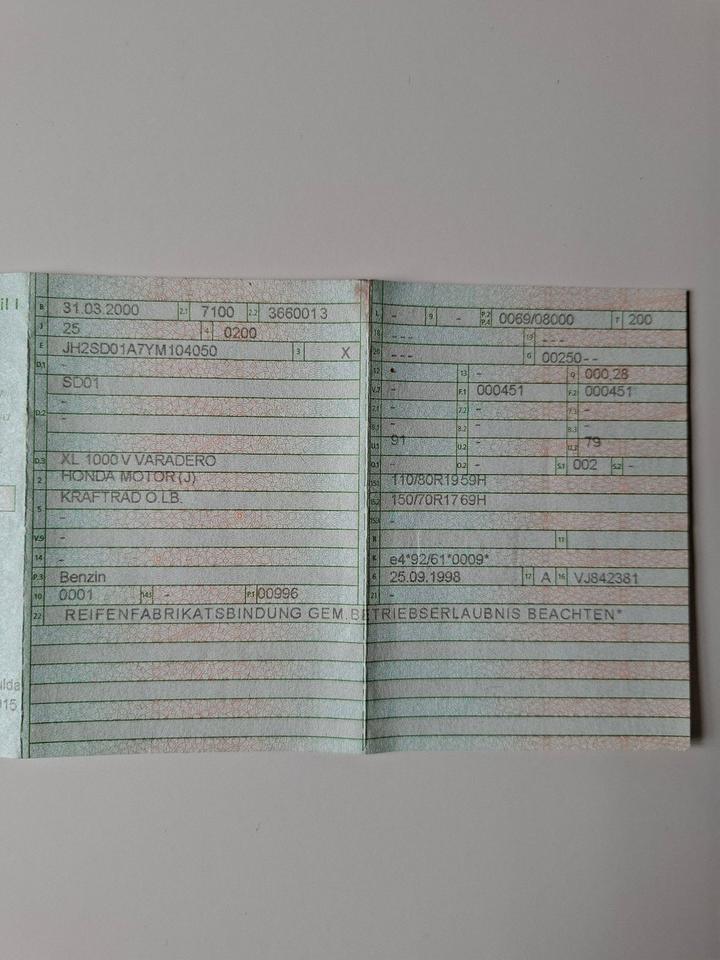 il I
B 31.03.2000 2.1 7100 2.2 3660013
J 25 4 0200
E JH2SD01A7YM104050 3 X
D.1 -
SD01
-
D.2 -
D.3 XL 1000 V VARADERO
2 HONDA MOTOR (J)
KRAFTRAD O.LB.
5 -
V.9 -
14 -
P.3 Benzin
10 0001 14.1 - P.1 00996
L - 9 - P.2 P.4 0069/08000 T 200
18 --- 19 ---
20 --- G 00250--
12 - 13 - Q 000,28
V.7 - F.1 000451 F.2 000451
7.1 - 7.2 - 7.3 -
8.1 - 8.2 - 8.3 -
U.1 91 U.2 - U.3 79
O.1 - O.2 - S.1 002 S.2 -
15.1 110/80R1959H
15.2 150/70R1769H
15.3 -
R 11
K e4*92/61*0009*
6 25.09.1998 17 A 16 VJ842381
21 -
22 REIFENFABRIKATSBINDUNG GEM.BETRIEBSERLAUBNIS BEACHTEN*